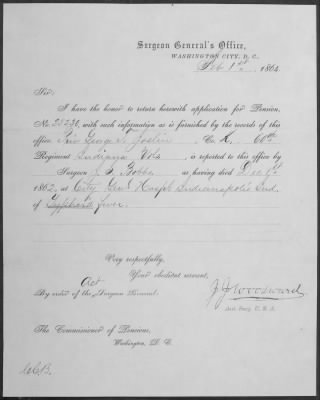 Surgeon General's Office,
WASHINGTON CITY, D. C.
Feb 1st, 1864
Sir:
I have the honor to return herewith application for Pension,
No. 25231, with such information as is furnished by the records of this
office. Priv George Joslin, Co. K, 60th
Regiment Indiana Vols is reported to this office by
Surgeon J. S. Bobbs as having died Dec
1862, at City Genl Hospl Indianapolis Ind.
of Typhoid fever.
Very respectfully,
Your obedient servant,
Act
By order of the Surgeon General:
J. J. Woodward
Ass. Surg. U. S. A.
The Commissioner of Pensions,
Washington, D. C.